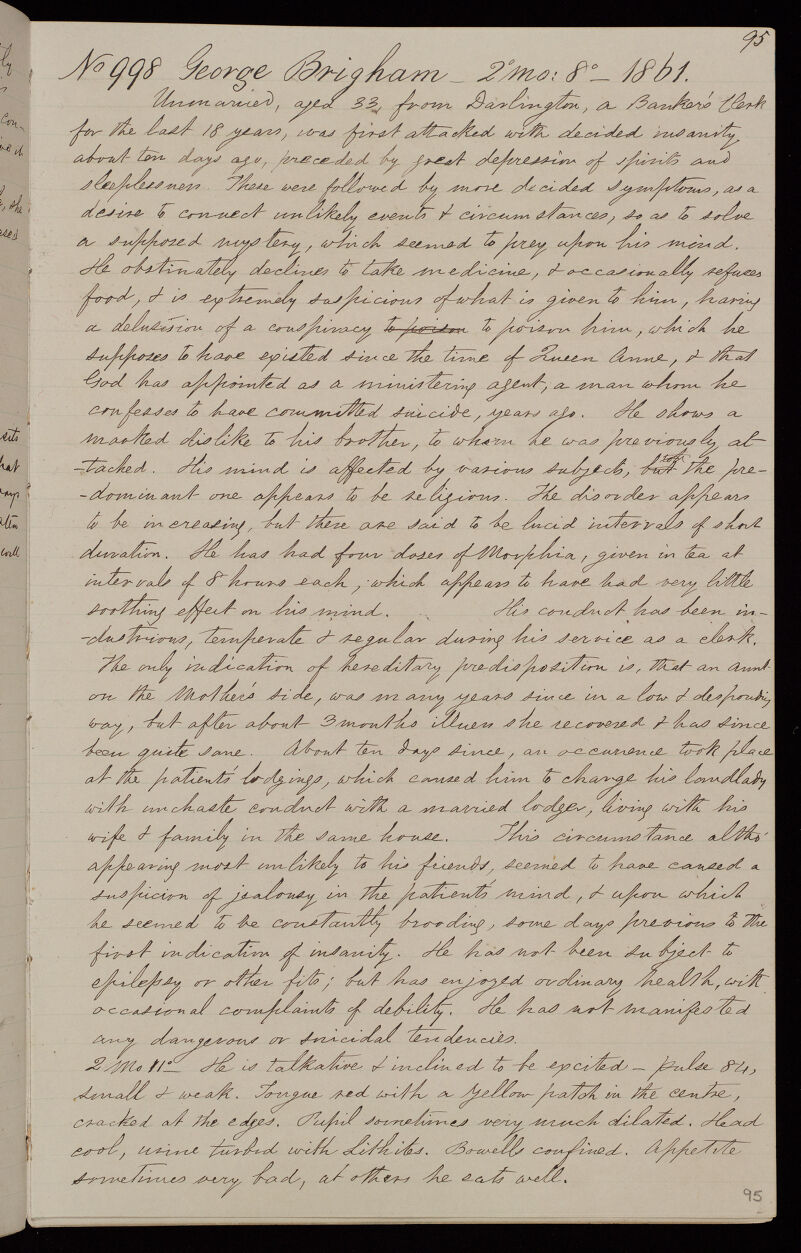 95
No 998 George Brigham - 2° mo: 8° - 1861.
Unmarried, aged 33, from Darlington, a Banker's Clerk
for the last 18 years, was first attacked with decided insanity
about ten days ago, preceded by great depression of spirits and
sleeplessness. These were followed by more decided symptoms, as a
desire to connect unlikely events & circumstances, so as to solve
a supposed mystery, which seemed to prey upon his mind.
He obstinately declines to take medicine, & occasionally refuses
food, & is extremely suspicious of what is given to him, having
a delusision of a conspiracy to poison to poison him, which he
supposes to have existed since the time of Queen Anne, & that
God has appointed as a ministering agent, a man whom he
confesses to have committed suicide, years ago. He shows a
marked dislike to his brother, to whom he was previously at
-tached. His mind is affected by various subjects, but the pre-
-dominant one appears to be religious. The disorder appears
to be increasing, but there are said to be lucid intervals of short
duration. He has had four doses of Morphia, given in tea at
intervals of 8 hours each, which appears to have had very little
soothing effect on his mind. His conduct has been in-
-dustrious, temperate & regular during his service as a clerk.
The only indication of hereditary predisposition is, that an Aunt
on the Mother's side, was many years since in a low & desponding
way, but after about 3 months illness she recovered & has since
been quite sane. About ten days since, an occurrence took place
at the patients' lodgings, which caused him to charge his landlady
with unchaste conduct with a married lodger, living with his
wife & family in the same house. This circumstance altho'
appearing most unlikely to his friends, seemed to have caused a
suspicion of jealousy in the patients' mind, & upon which
he seemed to be constantly brooding, some days previous to the
first indication of insanity. He has not been subject to
epilepsy or other fits; but has enjoyed ordinary health, with
occasional complaints of debility. He has not manifested
any dangerous or suicidal tendencies.
2 Mo 11° - He is talkative & inclined to be excited - pulse 84,
small & weak. Tongue red with a yellow patch in the centre,
cracked at the edges. Pupil sometimes very much dilated. Head
cool, urine turbid with Lithites. Bowells confined. Appetite
sometimes very bad, at others he eats well.
95